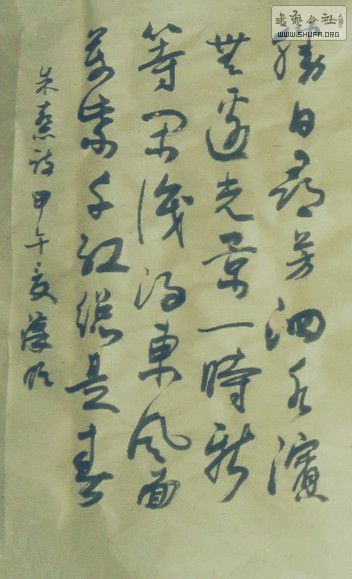 書藝公社
WWW.SHUFA.ORG
勝日尋芳泗水濱
無邊光景一時新
等閑識得東風面
萬紫千紅總是春
朱熹詩甲午夏